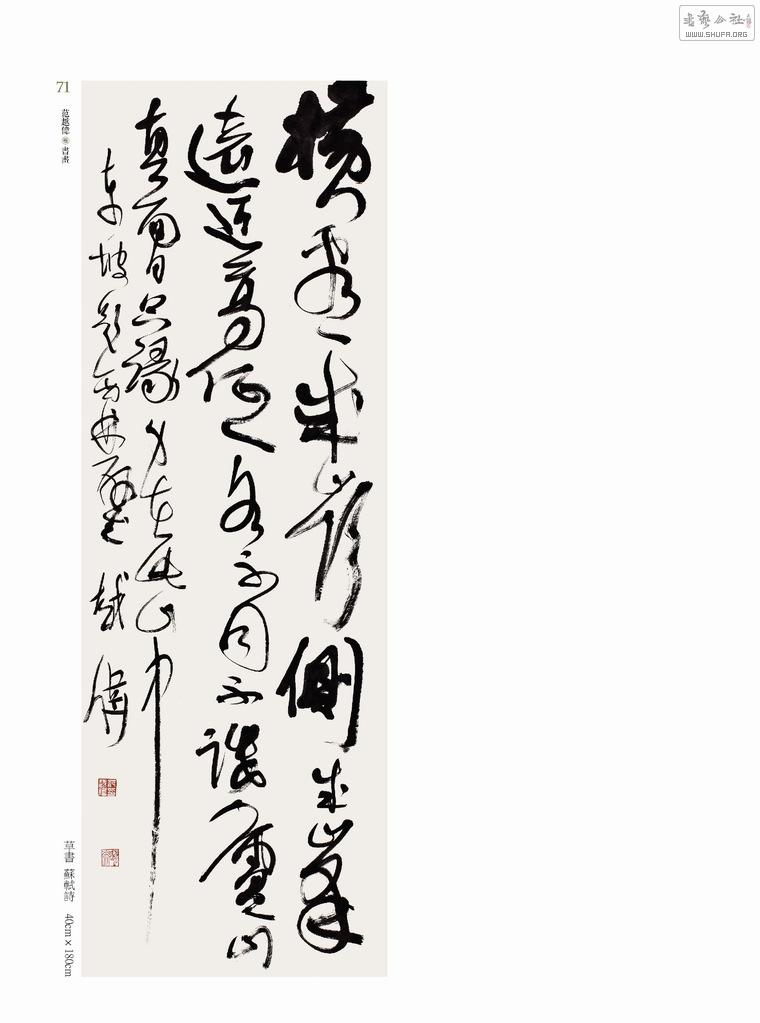 横看成岭側成峰
遠近高低各不同不識廬山
真面目只緣身在此山中
東坡題西林壁 越偉
71
范越偉 書畫
草書 蘇軾詩 40cm×180cm
書藝公社
WWW.SHUFA.ORG